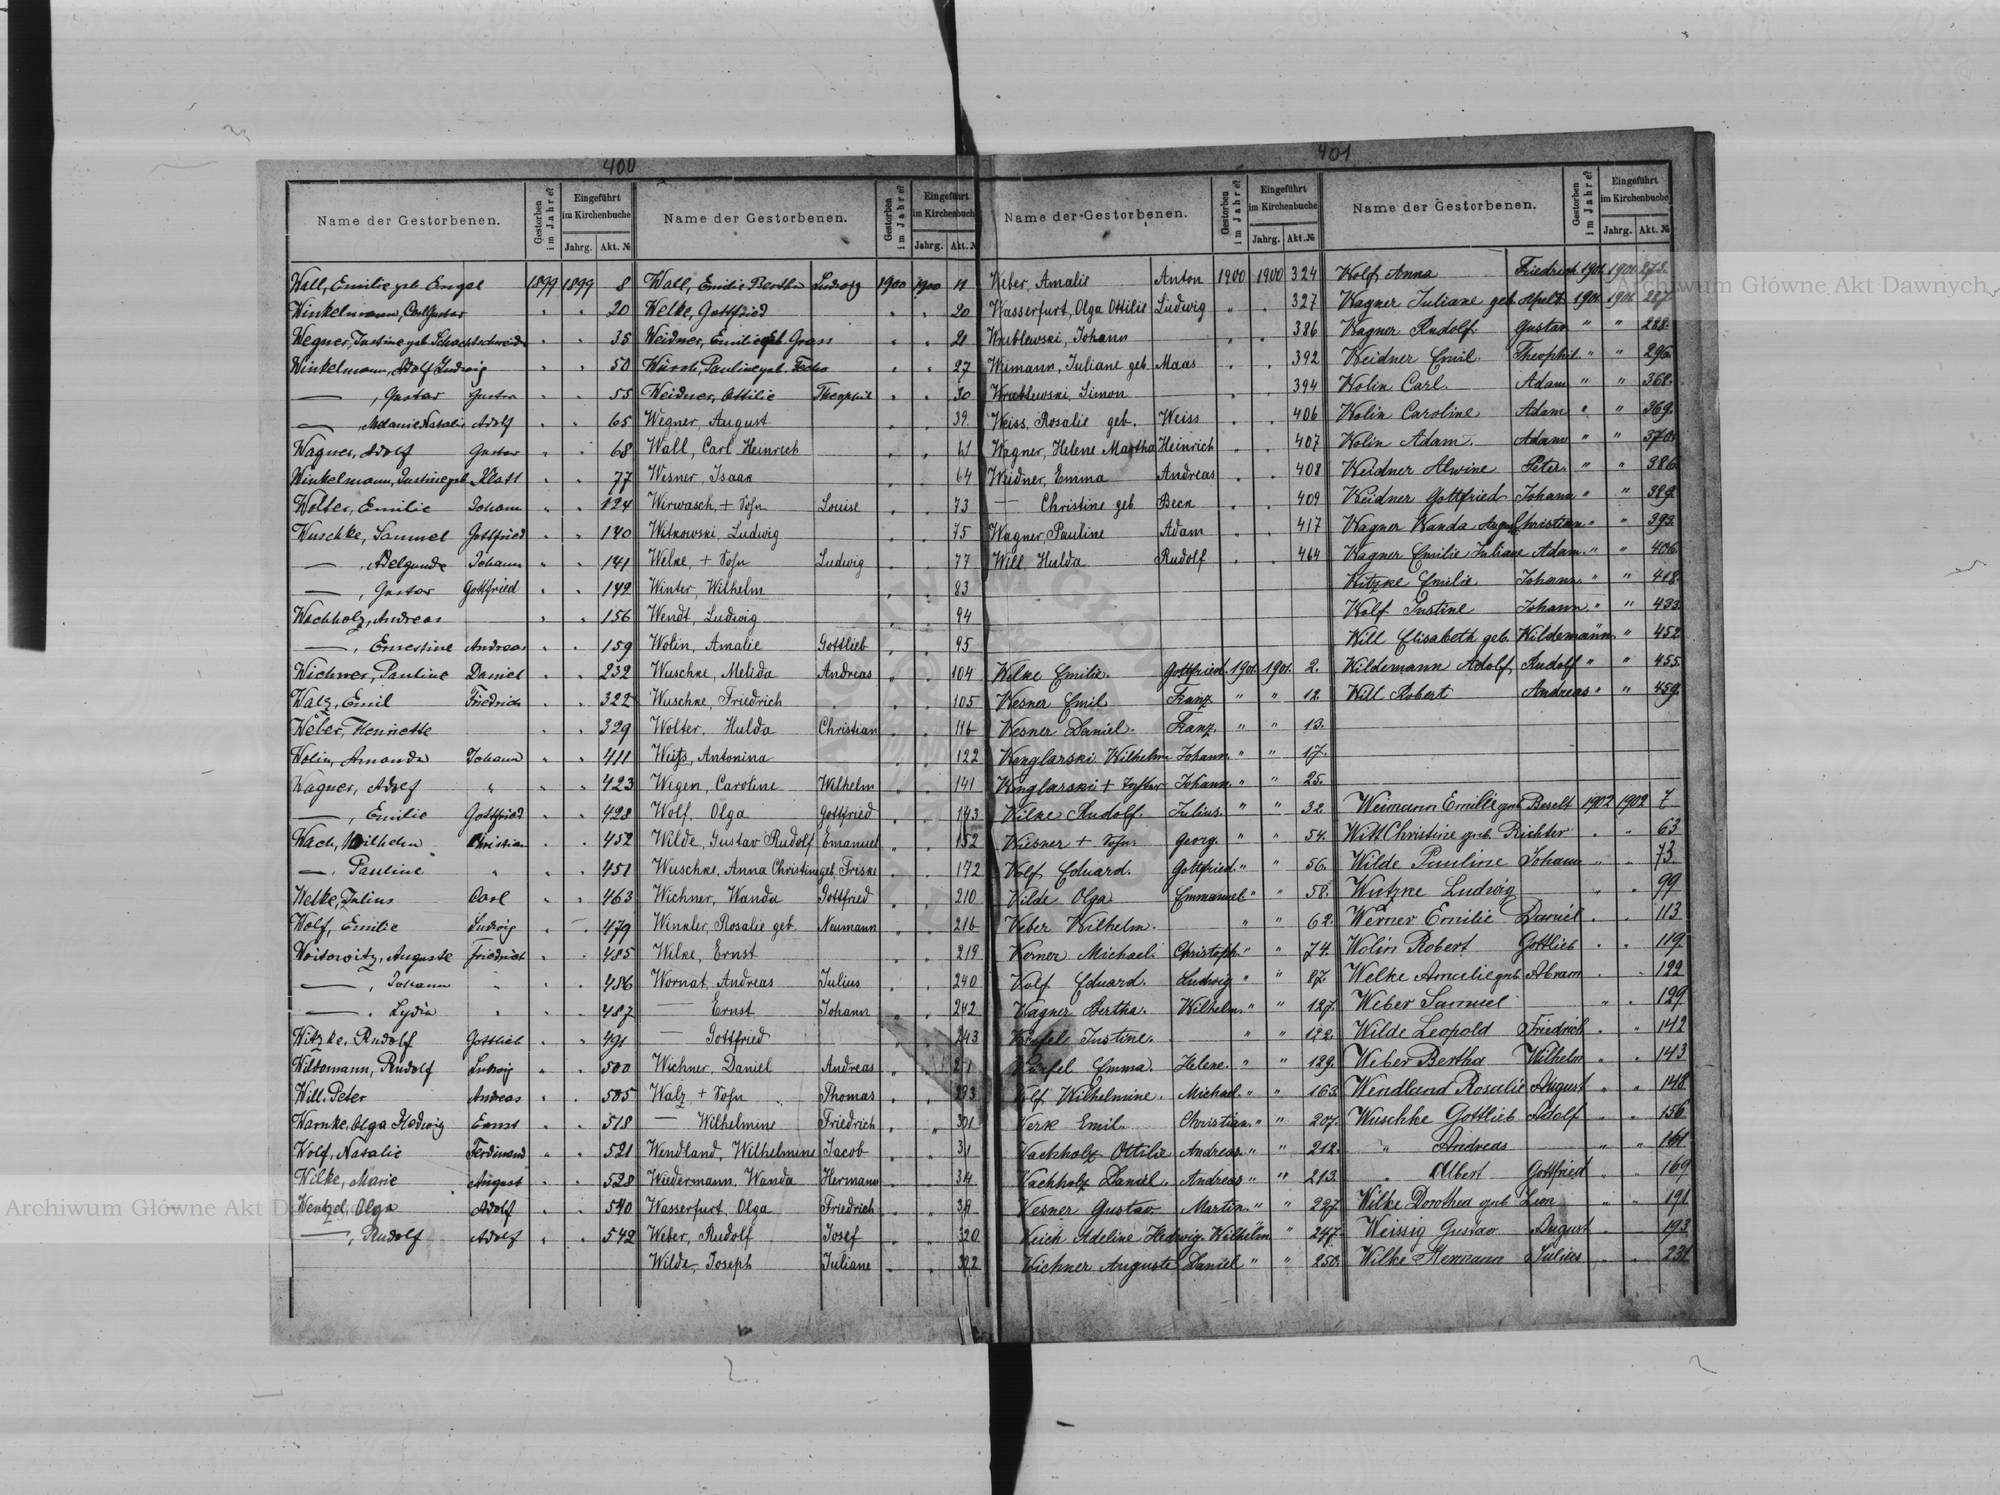 400
Name der Gestorbenen. Gestorben im Jahre? Eingeführt im Kirchenbuche Jahrg. Akt. №
Wall, Emilie geb. Engel 1899 1899 8
Winkelmann, Carl Gustav " " 20
Wegner, Justine geb. Schachtschneider " " 35
Winkelmann, Adolf Ludwig " " 50
—, Gustav Gustav " " 55
—, Melanie Natalie Adolf " " 65
Wagner, Adolf Gustav " " 68
Winkelmann, Justine geb. Klatt " " 77
Wolter, Emilie Johann " " 124
Wuschke, Samuel Gottfried " " 140
—, Adelgunde Johann " " 141
—, Gustav Gottfried " " 149
Wachholz, Andreas " " 156
—, Ernestine Andreas " " 159
Wichner, Pauline Daniel " " 232
Walz, Emil Friedrich " " 322
Weber, Henriette " " 329
Wolin, Amanda Johann " " 411
Wagner, Adolf " " " 423
—, Emilie Gottfried " " 428
Wach, Wilhelm Christian " " 452
—, Pauline " " " 451
Welke, Julius Carl " " 463
Wolf, Emilie Ludwig " 479
Woitowitz, Auguste Friedrich " " 485
—, Johann " " " 486
—, Lydia " " " 487
Witzke, Rudolf Gottlieb " " 491
Wildemann, Rudolf Ludwig " " 500
Will, Peter Andreas " " 505
Warnke, Olga Hedwig Ernst " " 518
Wolf, Natalie Ferdinand " " 521
Wilke, Marie August " " 528
Wentzel, Olga Adolf " " 540
—, Rudolf Adolf " " 542
Name der Gestorbenen. Gestorben im Jahre? Eingeführt im Kirchenbuch Jahrg. Akt. №
Wall, Emilie Bertha Ludwig 1900 1900 11
Welke, Gottfried " " 20
Weidner, Emilie geb. Grass " " 21
Pauline geb. " " 27
Weidner, Ottilie Theophil " " 30
Wegner, August 39
Wall, Carl Heinrich " "
Wesner, Isaak " " 64
Wirwasch, + Sohn Louise " " 73
Witkowski, Ludwig " " 75
Welke, + Sohn Ludwig " " 77
Winter, Wilhelm " " 83
Wendt, Ludwig " " 94
Wolin, Amalie Gottlieb " " 95
Wuschke, Melida Andreas " " 104
Wuschke, Friedrich " " " 105
Wolter, Hulda Christian " " 116
Weiß, Antonina " " 122
Wegen, Caroline Wilhelm " " 141
Wolf, Olga Gottfried " " 143
Wilde, Gustav Rudolf Emanuel " " 152
Wuschke, Anna Christine geb. Friske " " 172
Wichner, Wanda Gottfried " " 210
Winkler, Rosalie geb. Neumann " " 216
Welke, Ernst " " 219
Wornat, Andreas Julius " " 240
— Ernst Johann " " 242
— Gottfried " 243
Wichner, Daniel Andreas " "
Walz + Sohn " Thomas " " 293
— Wilhelmine Friedrich " " 301
Wendland, Wilhelmine Jacob " "
Wiedermann, Wanda Hermann " "
Wasserfurt, Olga Friedrich " "
Weber, Rudolf Josef " " 320
Wilde, Joseph Juliane " " 322
401
Name der Gestorbenen. Gestorben im Jahre? Eingeführt im Kirchenbuche Jahrg. Akt. №
Weber, Amalie Anton 1900 1900 324
Wasserfurt, Olga Ottilie Ludwig " " 327
Wrublewski, Johann " " 386
Weimann, Juliane geb. Maas " " 392
Wrublewski, Simon " " 394
Weiss, Rosalie geb. Weiss " " 406
Wagner, Helene Martha Heinrich " " 407
Weidner, Emma Andreas " " 408
— Christine geb. Beck " " 409
Wagner, Pauline Adam " " 417
Will, Hulda Rudolf " " 464
Wilke Emilie. Gottfried. 1901. 1901. 2.
Wesner Emil Franz " " 12.
Wesner Daniel. Franz. " " 13.
Wenglarski Wilhelm Johann. " " 17.
Wenglarski + Tochter Johann. " " 25.
Wilke Rudolf. Julius. " " 32.
Wiesner + Sohn. Georg. " " 54.
Wolf Eduard. Gottfried. " " 56.
Wilde Olga Emmanuel " " 58.
Weber Wilhelm. " " 62.
Werner Michael. Christoph. " " 74.
Wolf Eduard. Ludwig " " 87.
Wagner Bertha. Wilhelm. " " 127.
Justine. " " 122.
Emma. Helene. " " 129.
Wolf Wilhelmine. Michael. " " 163.
Werk Emil. Christian. " " 207.
Wachholz Ottilie Andreas. " " 212.
Wachholz Daniel. Andreas " " 213.
Wesner Gustav Martin. " " 227.
Weich Adeline Hedwig Wilhelm " 247.
Wichner Auguste Daniel " " 250.
Name der Gestorbenen. Gestorben im Jahre? Eingeführt im Kirchenbuche Jahrg. Akt. №
Wolf, Anna Friedrich 1901. 1901. 273.
Wagner Juliane geb. Apelt 1901. 1901. 287.
Wagner Rudolf. Gustav " " 288.
Weidner Emil. Theophil " " 296.
Wolin Carl. Adam " " 368.
Wolin Caroline Adam " " 369.
Wolin Adam. Adam " " 370.
Weidner Alwine Peter " " 386.
Weidner Gottfried Johann " " 389.
Wagner Wanda Christian " " 393.
Wagner Emilie Juliane Adam. " " 406.
Witzke Emilie Johann. " " 418.
Wolf Justine Johann. " " 433.
Will Elisabeth geb. Wildemann. " 452.
Wildemann Adolf, Rudolf " " 455.
Will Robert Andreas " " 459.
Weimann Emilie geb. Beselt 1902 1902 7
Witt Christine geb. Richter " " 63
Wilde Pauline Johann " " 73
Wutzke Ludwig " " 99
Werner Emilie Daniel " " 113
Wolin Robert Gottlieb " " 119
Welke Amalie geb. Abram " " 122
Weber Samuel " " 129
Wilde Leopold Friedrich " " 142
Weber Bertha Wilhelm " " 143
Wendland Rosalie August " " 148
Wuschke Gottlieb Adolf " " 156
" Andreas " " 161
" Albert Gottfried " " 169
Wilke Dorothea geb. " " 191
Weissig Gustav August " " 193
Wilke Hermann Julius " " 231
Archiwum Główne Akt Dawnych
Archiwum Główne Akt Dawnych